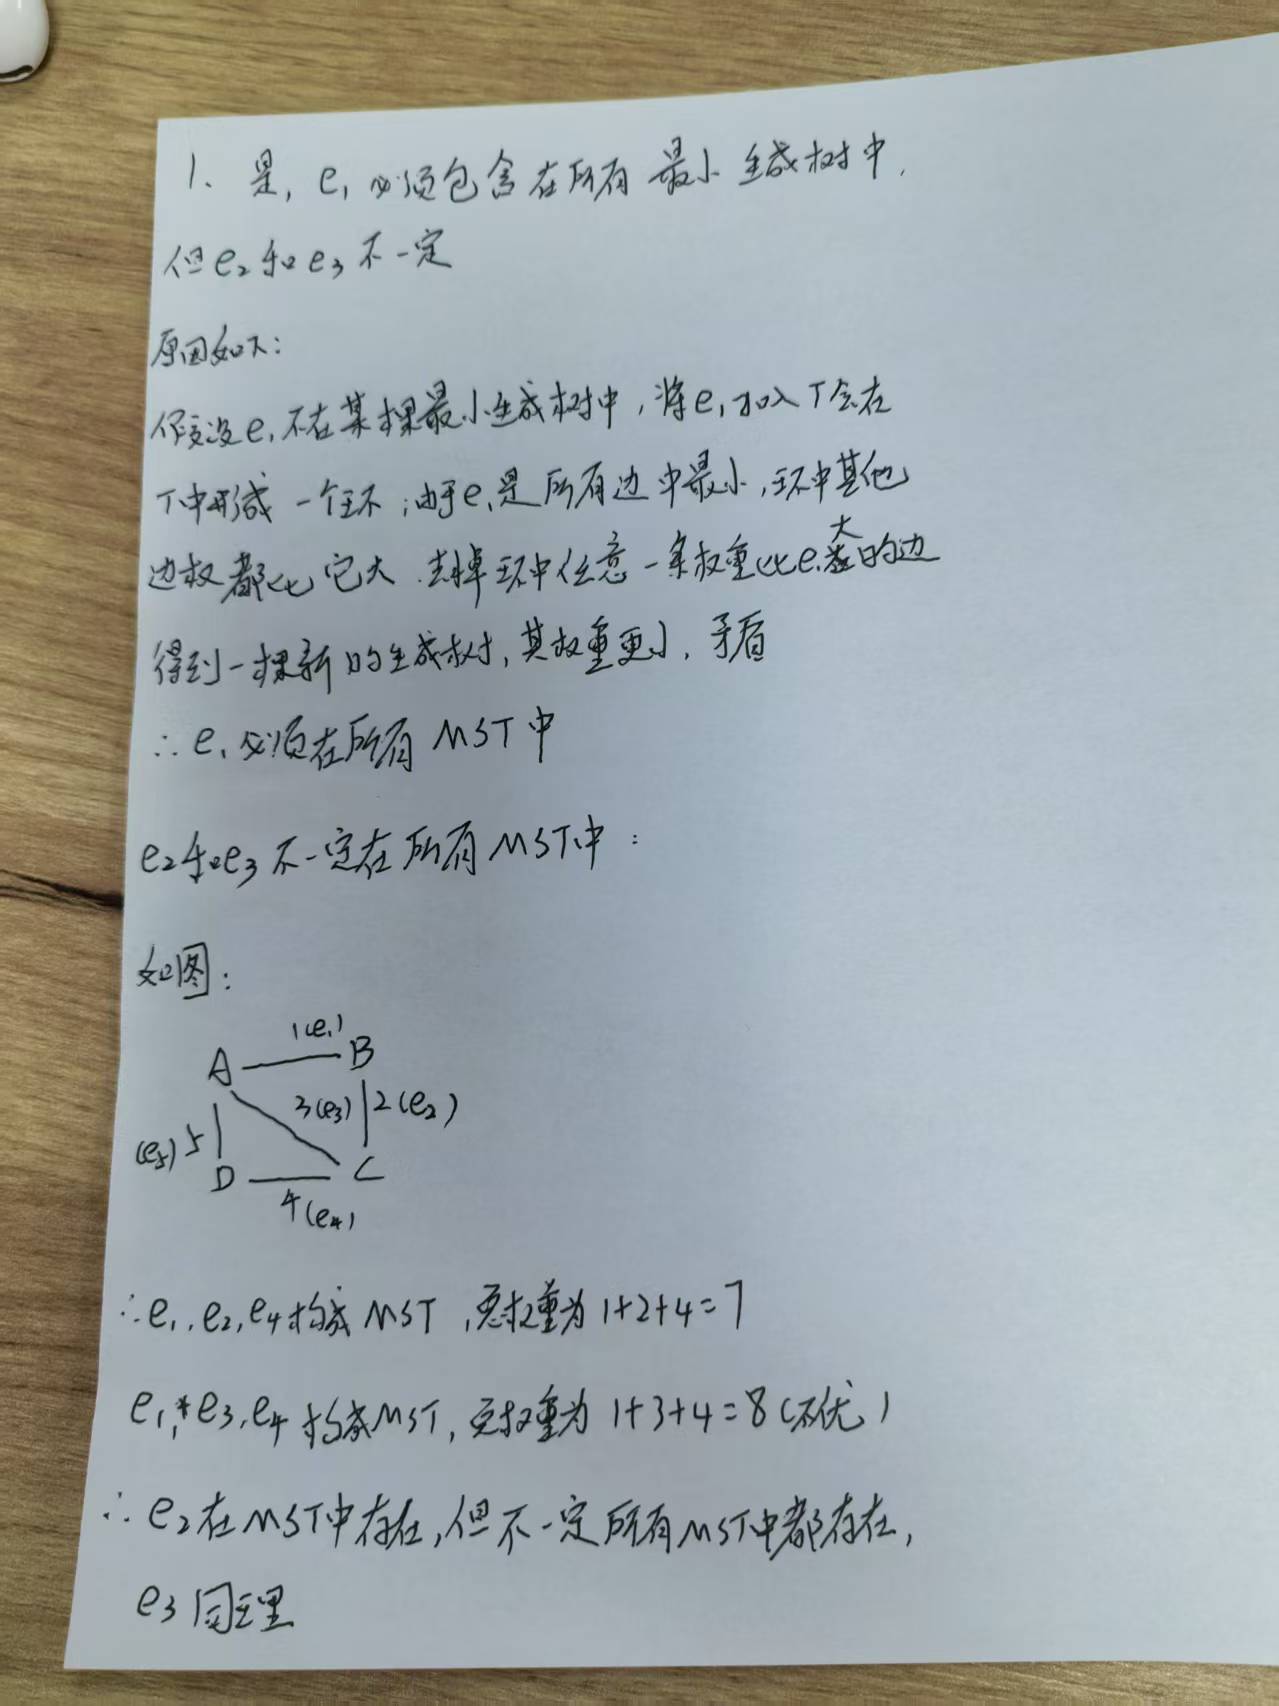 1、是，e₁必须包含在所有最小生成树中，
但e₂和e₃不一定
原因如下：
假设e₁不在某棵最小生成树中，将e₁加入T会在
T中形成一个环；由于e₁是所有边中最小，环中其他
边权都比它大．去掉环中任意一条权重比e₁大的边
得到一棵新的生成树，其权重更小，矛盾
∴e₁必须在所有MST中
e₂和e₃不一定在所有MST中：
如图：
1(e₁)
A B
3(e₃) 2(e₂)
(e₅) 5
D C
4(e₄)
∴e₁，e₂，e₄构成MST，总权重为1+2+4=7
e₁，e₃，e₄构成MST，总权重为1+3+4=8（不优）
∴e₂在MST中存在，但不一定所有MST中都存在，
e₃同理